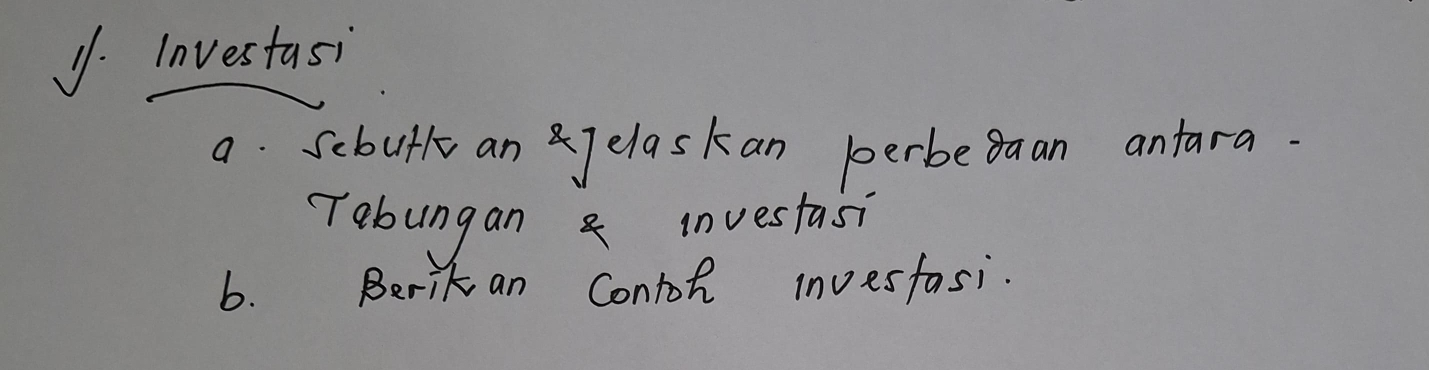 1. Investasi
a. Sebutkan & Jelaskan perbedaan antara -
Tabungan & investasi
b. Berikan Contoh investasi.